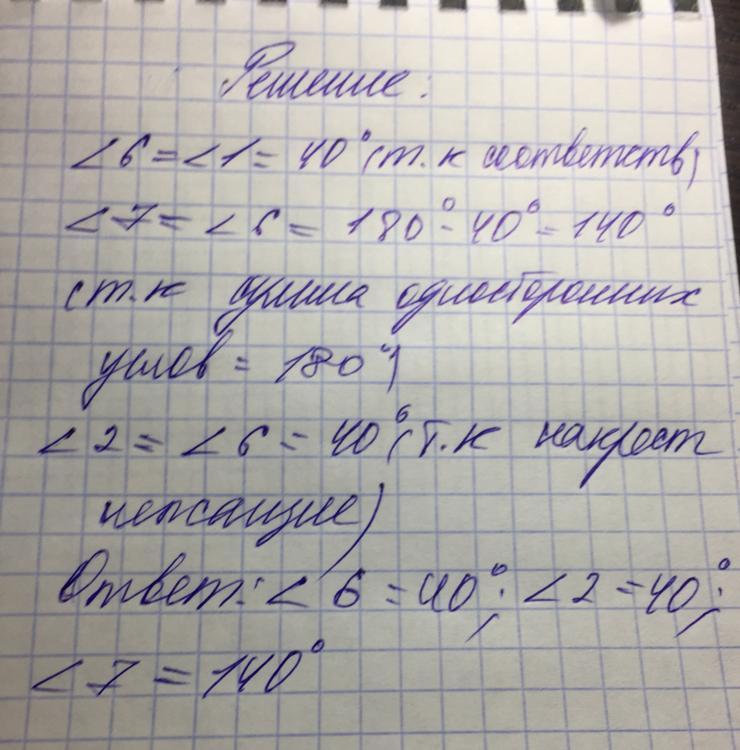 Решение:
∠6 = ∠1 = 40° (т.к соответств)
∠7 = ∠6 = 180° - 40° = 140°
(т.к сумма односторонних
углов = 180°)
∠2 = ∠6 = 40° (т.к накрест
лежащие)
Ответ: ∠6 = 40°; ∠2 = 40°;
∠7 = 140°